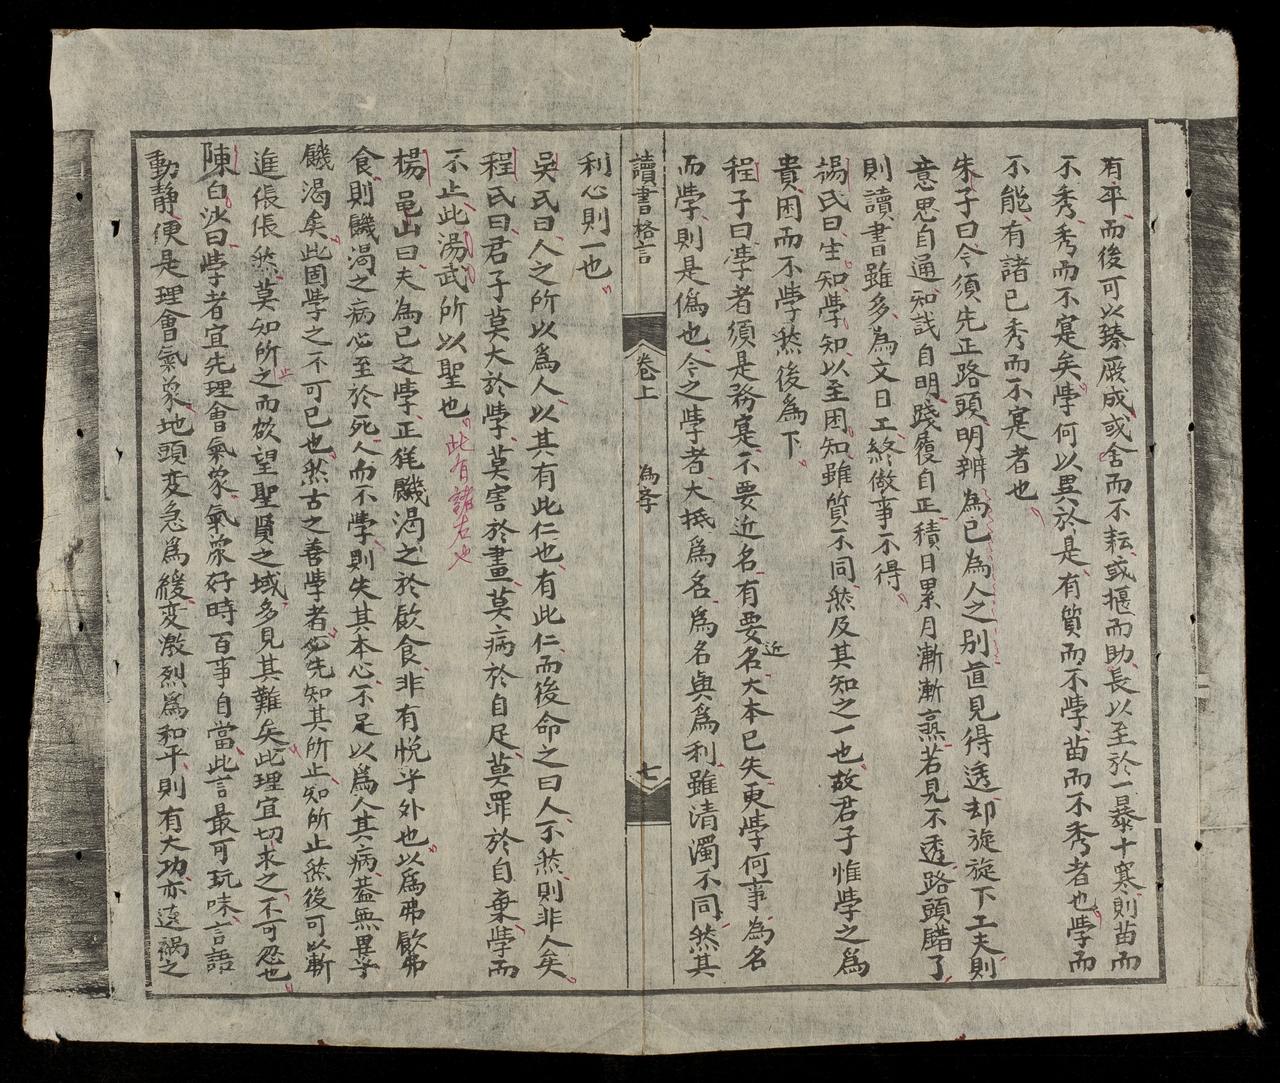 有乎而後可以臻厥成或舍而不耘或揠而助長以至於一暴十寒則苗而
不秀秀而不寔矣學何以異於是有質而不學苗而不秀者也學而
不能有諸己秀而不寔者也
朱子曰今須先正路頭明辨為己為人之别直見得透却旋旋下工夫則
意思自通知識自明踐履自正積日累月漸漸熟若見不透路頭錯了
則讀書雖多為文日工終做事不得
楊氏曰生知學知以至困知雖質不同然及其知之一也故君子惟學之為
貴困而不學然後為下
程子曰學者須是務寔不要近名有要近名大本已失更學何事為名
而學則是偽也今之學者大抵為名為名與為利雖清濁不同然其
讀書格言 卷上 為学 七
利心則一也
吳氏曰人之所以為人以其有此仁也有此仁而後命之曰人不然則非人矣
程氏曰君子莫大於學莫害於畫莫病於自足莫罪於自棄學而
不止此湯武所以聖也 此有諸右也
楊龜山曰夫為己之學正猶饑渴之於飲食非有悅乎外也以為弗飲弗
食則饑渴之病必至於死人而不學則失其本心不足以為人其病蓋無異乎
饑渴矣此固學之不可已也然古之善學者必先知其所止知所止然後可以漸
進倀倀然莫知所止之而欲望聖賢之域多見其難矣此理宜切求之不可忽也
陳白沙曰學者宜先理會氣象氣象好時百事自當此言最可玩味言語
動静便是理會氣象地頭变急為緩变激烈為和平則有大功亦遠禍之